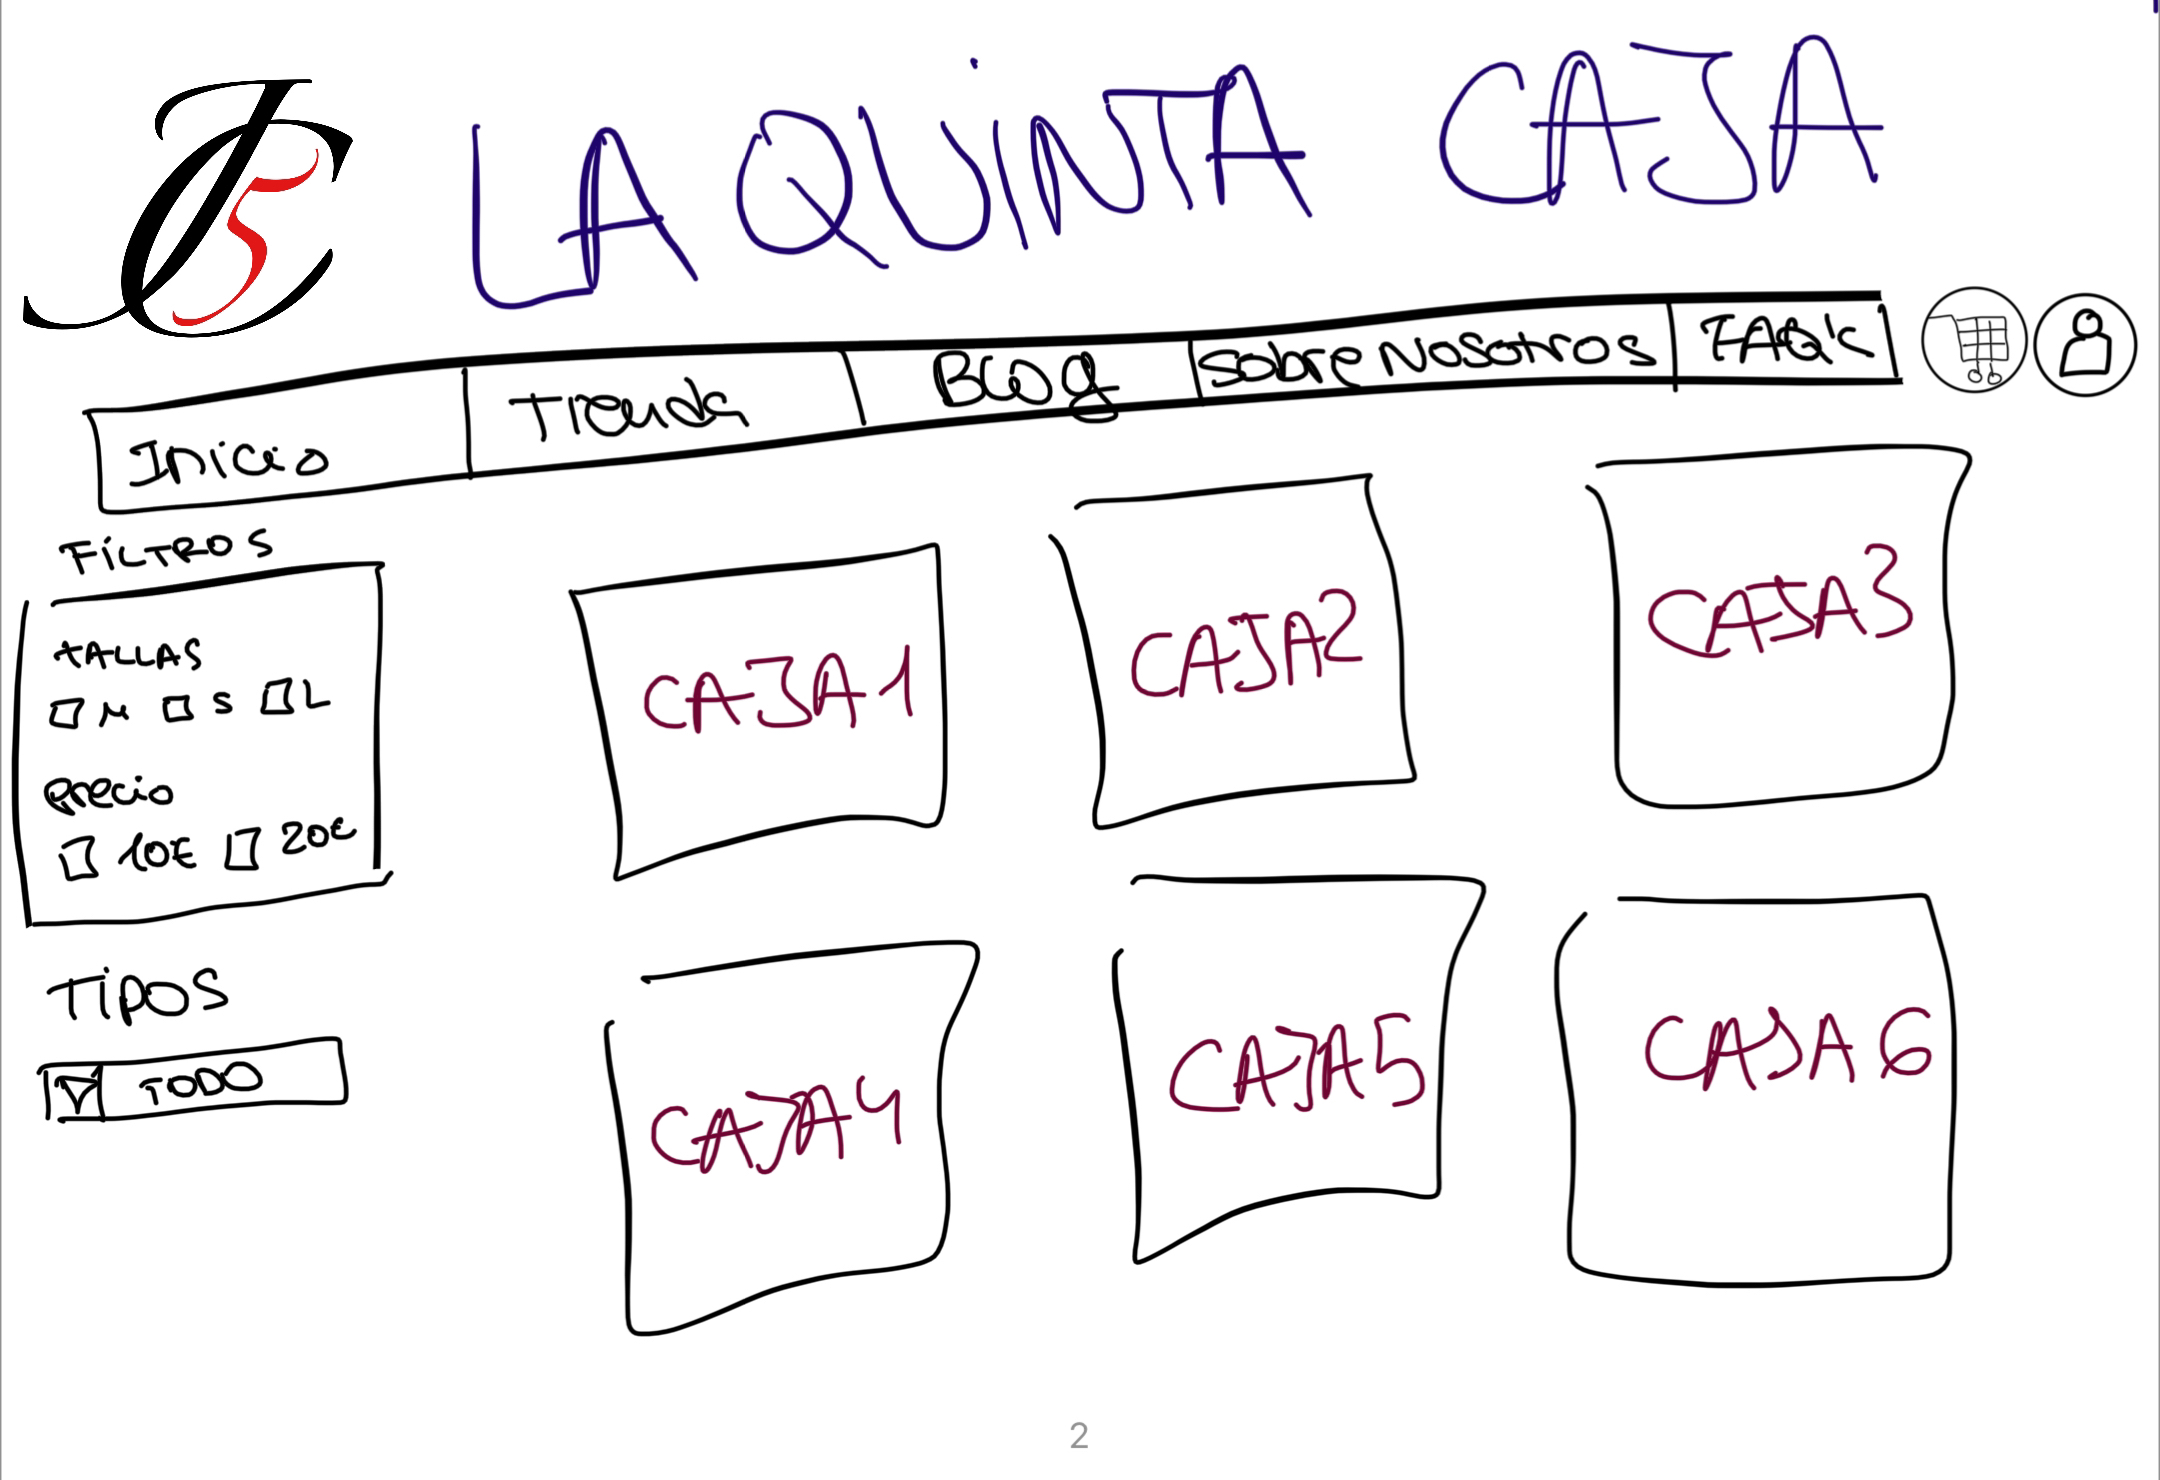 JC5
LA QUINTA CAJA
Inicio Tienda Blog Sobre Nosotros FAQ's
FILTROS
tALLAS
M S L
precio
10€ 20€
TiPOS
TODO
CAJA1 CAJA2 CAJA3
CAJA4 CAJA5 CAJA6
2